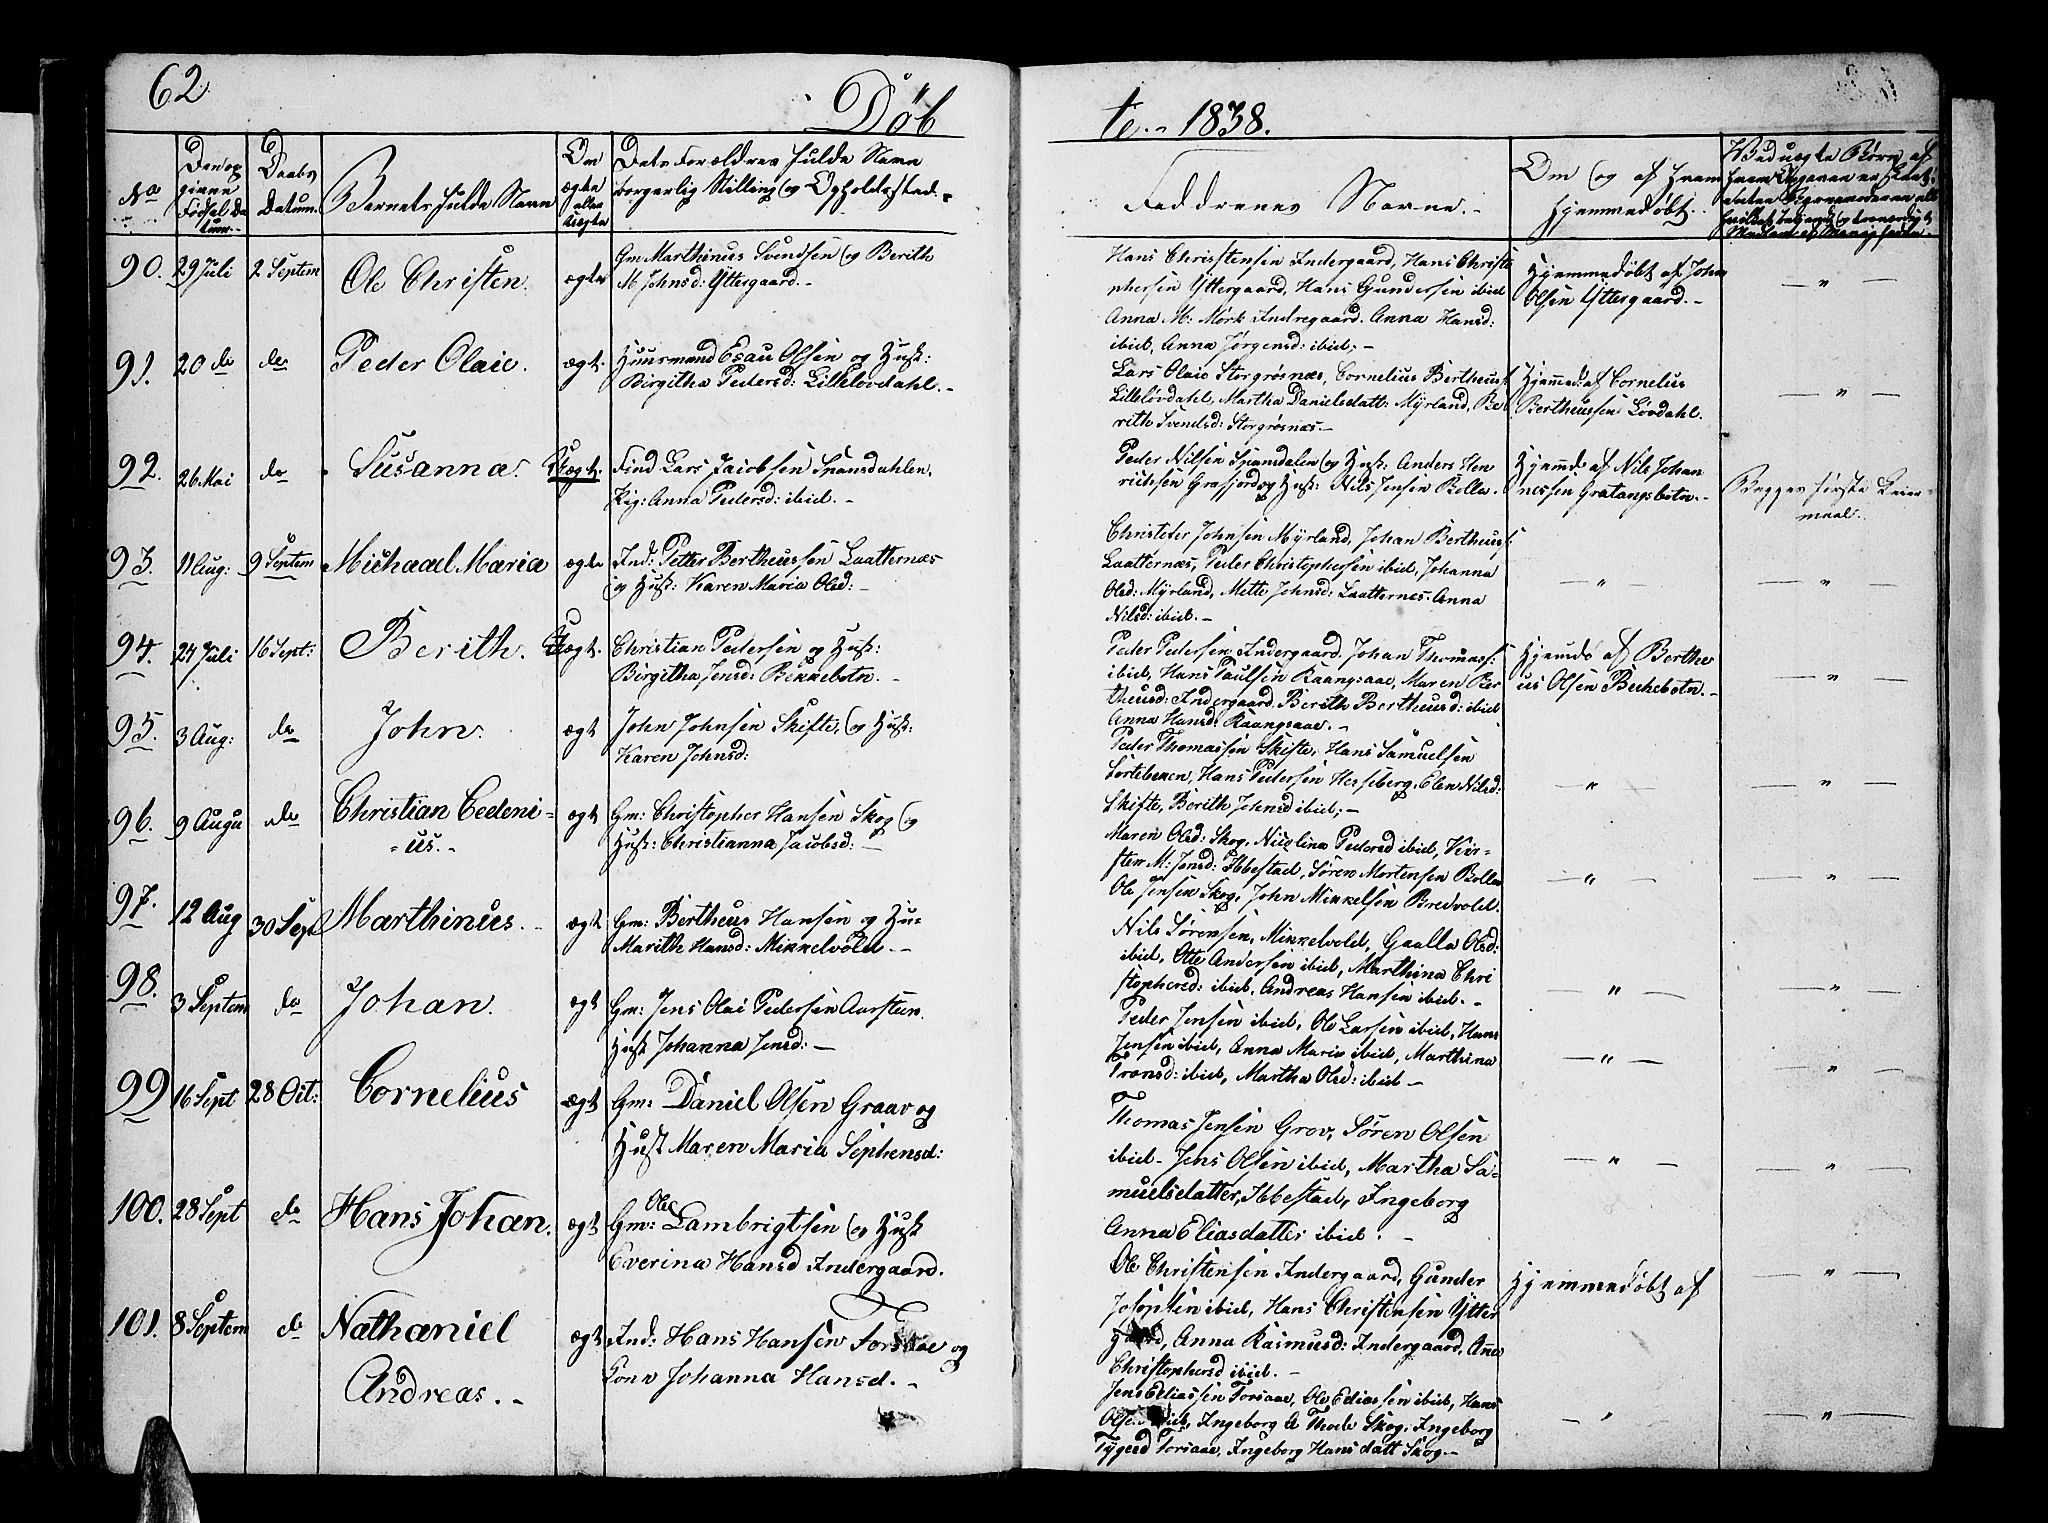 62
Döb
te. 1838.
No
Den op
givne
Födsel Da
tum.
Daabs
Datum.
Barnets fulde Navn
Om
ægte
eller
uægte
Dets Forældres fulde Navn
borgerlig Stilling og Opholdssted.
Faddrenes Navne.
Om og af hvem
hjemmedöbt.
Ved uægte Börn af
90. 29 Juli 2 Septem Ole Christen. ægte
Gm Marthinus Svendsen og Berith
M Johnsd: Yttergaard.
Hans Christensen Indergaard, Hans Christo
phersen Yttergaard, Hans Gundersen ibid
Anna M: Mörk Indregaard. Anna Hansd:
ibid, Anna Jörgensd: ibid;
Hjemmedöbt af Johan
Olsen Yttergaard.
91. 20 do do Peder Olaie. ægt.
Huusmand Esau Olsen og Hust:
Birgitha Pedersd: Lillelövdahl.
Lars Olaie Storgrösnæs, Cornelius Bertheuss:
Lillelövdahl, Martha Danielsdatt: Myrland, Be
rith Svendsd: Storgrösnæs.
Hjemmed: af Cornelius
Bertheussen Lövdahl.
92. 26 Mai do Susanna. Uægt.
Find Lars Jacobsen Spansdahlen,
Pig: Anna Pedersd: ibid.
Peder Nilsen Spansdalen og Hust: Anders Hen
richsen Grafjord og Hust: Nils Jensen Bolla.
Hjemmd: af Nils Johan
nessen Gratangsbotn.
Begges förste Leier
maal.
93. 11 Aug: 9 Septem Michaael Maria ægte
Ind: Petter Bertheussen Laatternæs
og Hust: Karen Maria Olsd:
Christofer Johnsen Myrland, Johan Bertheuss:
Laatternæs, Peder Christophersen ibid, Johanna
Olsd: Myrland, Mette Johnsd: Laatternes. Anna
Nilsd: ibid.
94. 24 Juli 16 Sept: Berith. Uægt.
Christian Pedersen og Hust:
Birgitha Jensd: Bekkebotn.
Peder Pedersen Indergaard. Johan Thomass:
ibid, Hans Paulsen Kaangsaae, Maren Ber
theusd: Indergaard. Berith Bertheusd: ibid
Anna Hansd: Kaangsaae.
Hjemmd: af Berthe
us Olsen Bechebotn.
95. 3 Aug: do John. ægt
John Johnsen Skifte, og Hust:
Karen Johnsd:
Peder Thomassen Skifte, Hans Samuelsen
Sörteberen, Hans Pedersen Hesseberg, Elen Nilsd:
Skifte, Berith Johnsd ibid;
96. 9 Augu do Christian Cedeni-
us. ægt
Gm: Christopher Hansen Skog og
Hust: Christianna Jacobsd:
Maren Olsd: Skog, Nicolina Pedersd ibid, Kir-
sten M: Jensd: Ibbestad, Sören Mortensen Bolla
Ole Jensen Skog, John Mikkelsen Bredvold.
97. 12 Aug 30 Sept Marthinus. ægt
Gm: Bertheus Hansen og Hu-
Marith Hansd: Mikkelvold.
Nils Sörensen, Mikkelvold, Gaalla Olsd:
ibid, Otte Andersen ibid, Marthina Chri
stophersd: ibid, Andreas Hansen ibid.
98. 3 Septem do Johan. ægt
Gm: Jens Olai Pedersen Aarsteen.
Hust Johanna Jensd:
Peder Jensen ibid, Ole Larsen ibid, Hans
Jensen ibid, Anna Maria ibid, Marthina
Tronsd: ibid, Martha Olsd: ibid
99 16 Sept 28 Oct: Cornelius ægt
Gm: Daniel Olsen Graav og
Hust Maren Maria Sephensd:
Thomas Jensen Grov, Sören Olsen
ibid- Jens Olsen ibid, Martha Sa-
muelsdatter, Ibbestad, Ingeborg
Anna Eliasdatter ibid.
100. 28 Sept do Hans Johan. ægt
Gm: Ole Lambrigtsen og Hust
Everina Hansd Indergaard.
Ole Christensen Indergaard, Gunder
Josephsen ibid, Hans Christensen Ytter
gaard, Anna Rasmusd: Indergaard, Ane
Christophersd ibid.
Hjemmedöbt af
101. 8 Septem do Nathaniel
Andreas. ægt
Ind: Hans Hansen Forsaae og
Kone Johanna Hansd.
Jens Eliassen Forsaae, Ole Eliassen ibid, Hans
Olsen ibid, Ingeborg A Skog, Ingeborg
Forsaae, Ingeborg Hansdatt Skog.